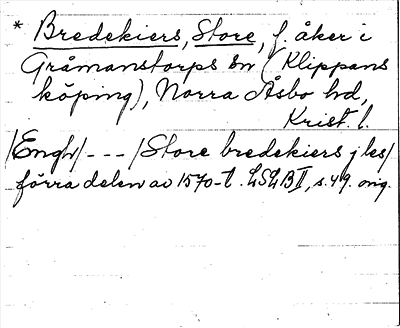 * Bredekiers, Store, f. åker i
Gråmanstorps sn (Klippans
köping), Norra Åsbo hd,
Krist. l.
/Engh/ - - - /Store bredekiers j les/
förra delen av 1570-t. LSLB II, s. 49. orig.